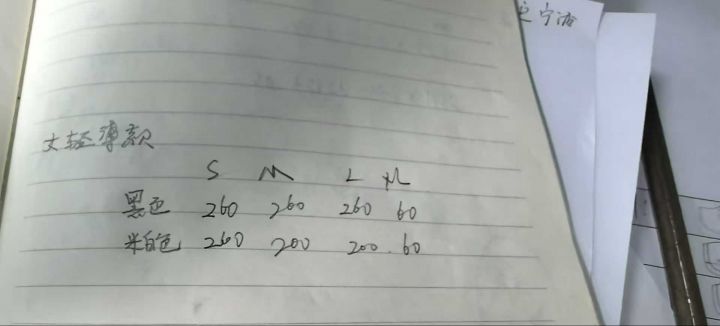 女轻薄款
S M L XL
黑色 260 260 260 60
米白色 260 200 200 60